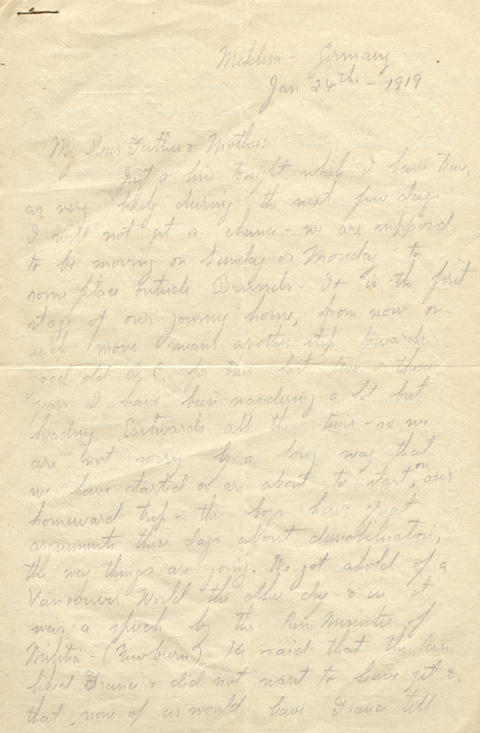 Mehlem - Germany
Jan 24th - 1919
My Dear Father & Mother:
Just a line tonight while I have time,
as very likely during the next few days
I will not get a chance - we are supposed
to be moving on Sunday or Monday to
some place outside Brussels - It is the first
stage of our journey home, from now on
each move means another step towards
good old B.C. for this last two & three
years I have been wandering a lot but
heading Eastwards all the time - so we
are not sorry by a long way that
we have started or are about to start on our
homeward trip - the boys have great
arguments these days about demobilization,
the way things are going. We got ahold of a
Vancouver World the other day & in it
was a speech by the Minister of
Militia - (Newburn) He said that the
liked France & did not want to leave yet &
that none of us would leave France till